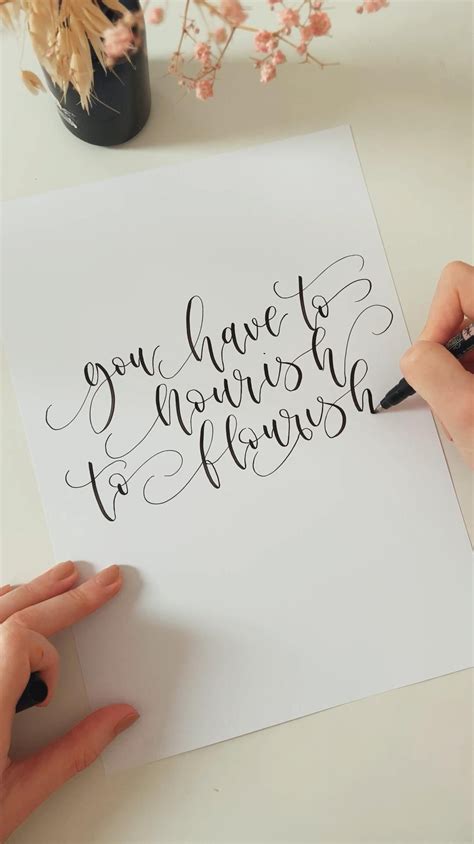 you have to
nourish
to flourish